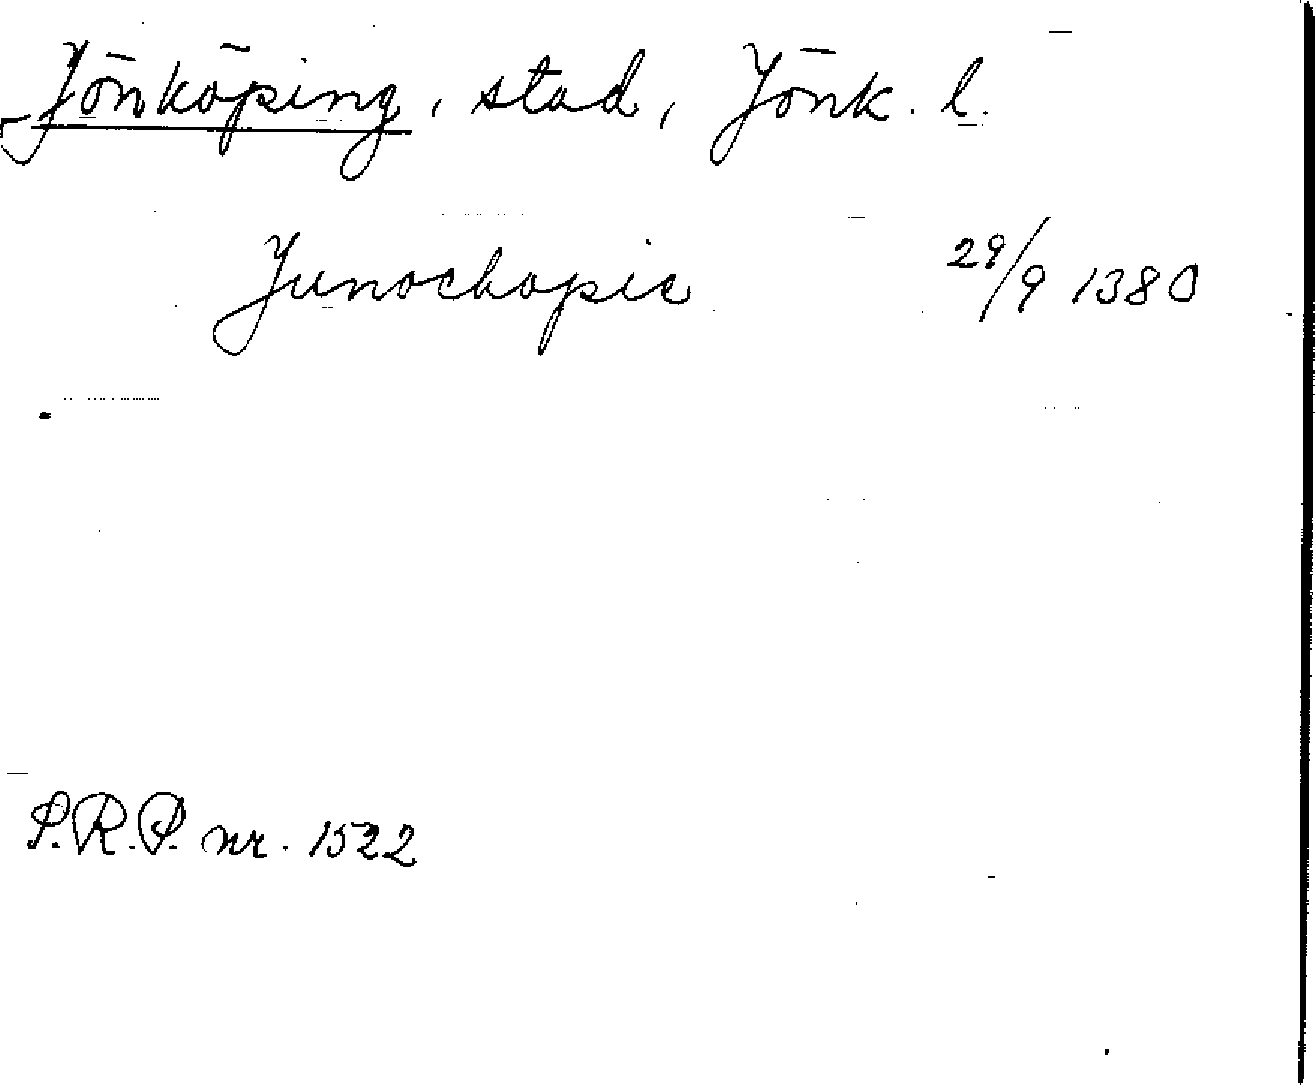 Jönköping, stad, Jönk. l.
Junochopie 29/9 1380
S.R.P. nr. 1522